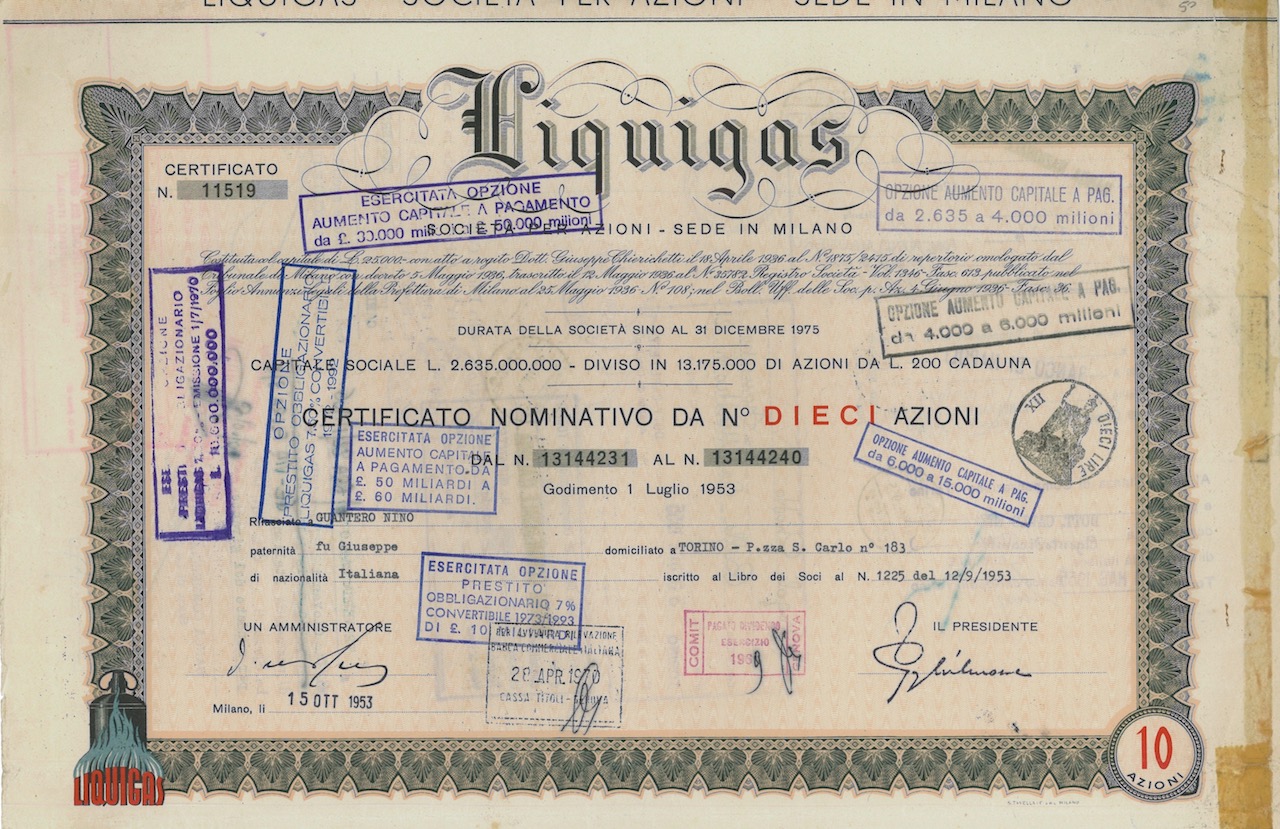 LIQUIGAS - SOCIETÀ PER AZIONI - SEDE IN MILANO
Liquigas
CERTIFICATO
N. 11519
ESERCITATA OPZIONE
AUMENTO CAPITALE A PAGAMENTO
da £. 30.000 £ 50.000 milioni
OPZIONE AUMENTO CAPITALE A PAG.
da 2.635 a 4.000 milioni
SOCIETÀ PER AZIONI - SEDE IN MILANO
Costituita col capitale di L. 25000 con atto a rogito Dott. Giuseppe Chierichetti il 18 Aprile 1936 al N° 1875/2475 di repertorio omologato dal
Tribunale di Milano con decreto 5 Maggio 1936, trascritto il 12 Maggio 1936 al N° 35782 Registro Società - Vol. 1346 - Fasc. 613 pubblicato nel
Foglio Annunzi Legali della Prefettura di Milano al 25 Maggio 1936 N° 108; nel Boll. Uff. delle Soc. p. Az. 4 Giugno 1936 Fasc. 36.
OPZIONE AUMENTO CAPITALE A PAG.
da 4.000 a 6.000 milioni
DURATA DELLA SOCIETÀ SINO AL 31 DICEMBRE 1975
CAPITALE SOCIALE L. 2.635.000.000 - DIVISO IN 13.175.000 DI AZIONI DA L. 200 CADAUNA
OPZIONE
OBBLIGAZIONARIO
EMISSIONE 1/7/1970
£. 10.000.000.000
OPZIONE
PRESTITO OBBLIGAZIONARIO
LIQUIGAS 7% CONVERTIBILE
CERTIFICATO NOMINATIVO DA N° DIECI AZIONI
DIECI LIRE
XII
ESERCITATA OPZIONE
AUMENTO CAPITALE
A PAGAMENTO DA
£. 50 MILIARDI A
£. 60 MILIARDI.
DAL N. 13144231 AL N. 13144240
OPZIONE AUMENTO CAPITALE A PAG.
da 6.000 a 15.000 milioni
Godimento 1 Luglio 1953
Rilasciato a GUANTERO NINO
paternità fu Giuseppe domiciliato a TORINO - P.zza S. Carlo n° 183
di nazionalità Italiana iscritto al Libro dei Soci al N. 1225 del 12/9/1953
ESERCITATA OPZIONE
PRESTITO
OBBLIGAZIONARIO 7%
CONVERTIBILE 1973/1993
DI £. 10 MILIARDI
UN AMMINISTRATORE
BANCA COMMERCIALE ITALIANA
28 APR. 1970
CASSA TITOLI - GENOVA
COMIT
PAGATO DIVIDENDO
ESERCIZIO
196
GENOVA
IL PRESIDENTE
Milano, li 15 OTT 1953
LIQUIGAS
10
AZIONI